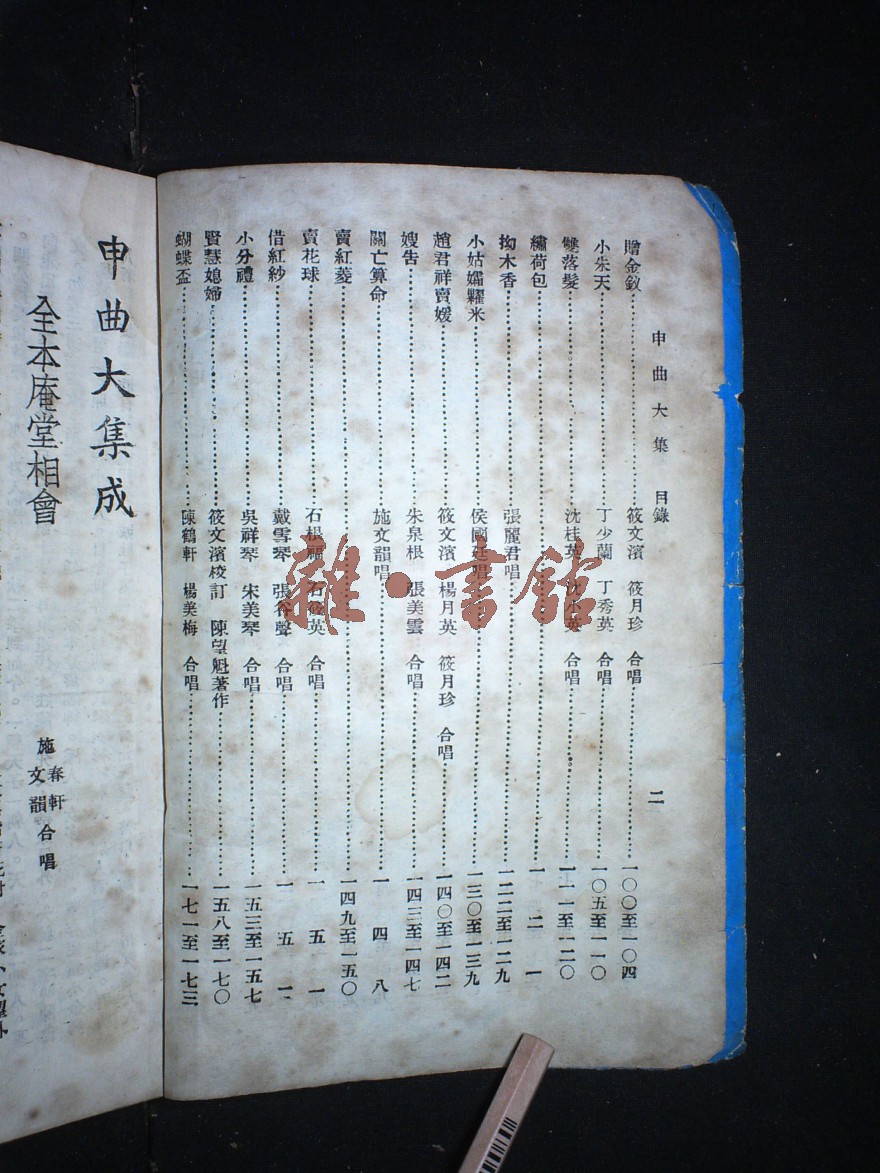 申曲大集 目錄 二
贈金釵 筱文濱 筱月珍 合唱 一〇〇至一〇四
小朱天 丁少蘭 丁秀英 合唱 一〇五至一一〇
雙落髮 沈桂英 沈小英 合唱 一一一至一二〇
繡荷包 一二一
拗木香 張麗君唱 一二二至一二九
小姑孀糶米 侯國廷唱 一三〇至一三九
趙君祥賣嫒 筱文濱 楊月英 筱月珍 合唱 一四〇至一四二
嫂告 朱泉根 張美雲 合唱 一四三至一四七
關亡算命 施文韻唱 一四八
賣紅菱 一四九至一五〇
賣花球 石根福 石筱英 合唱 一五一
借紅紗 戴雪琴 張谷聲 合唱 一五二
小分禮 吳祥琴 宋美琴 合唱 一五三至一五七
賢慧媳婦 筱文濱校訂 陳望魁著作 一五八至一七〇
蝴蝶盃 陳鶴軒 楊美梅 合唱 一七一至一七三
申曲大集成
全本庵堂相會
施春軒
文韻
合唱
雜·書館